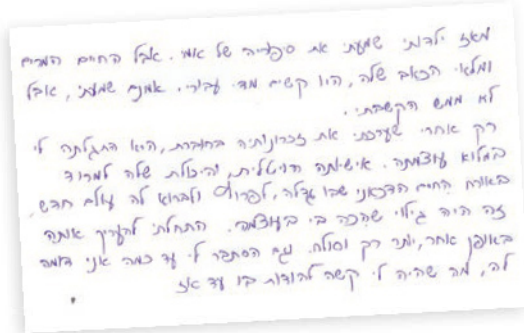 מאז ילדותי שמעתי את סיפוריה של אמי. אבל החיים המרים
ומלאי הכאב שלה, היו קשים מדי עבורי. אמנם שמעתי, אבל
לא ממש הקשבתי.
רק אחרי שערכתי את זכרונותיה בחוברת, היא התגלתה לי
במלוא עוצמתה. אישיותה הויטלית, והיכולת שלה למרוד
באורח החיים הדכאני שבו גדלה, לפרוץ ולברוא לה עולם חדש.
זה היה גילוי שהכה בי בעוצמה. התחלתי להעריך אותה
באופן אחר, יותר רק וסולח. וגם הסתבר לי עד כמה אני דומה
לה, מה שהיה לי קשה להודות בו עד אז